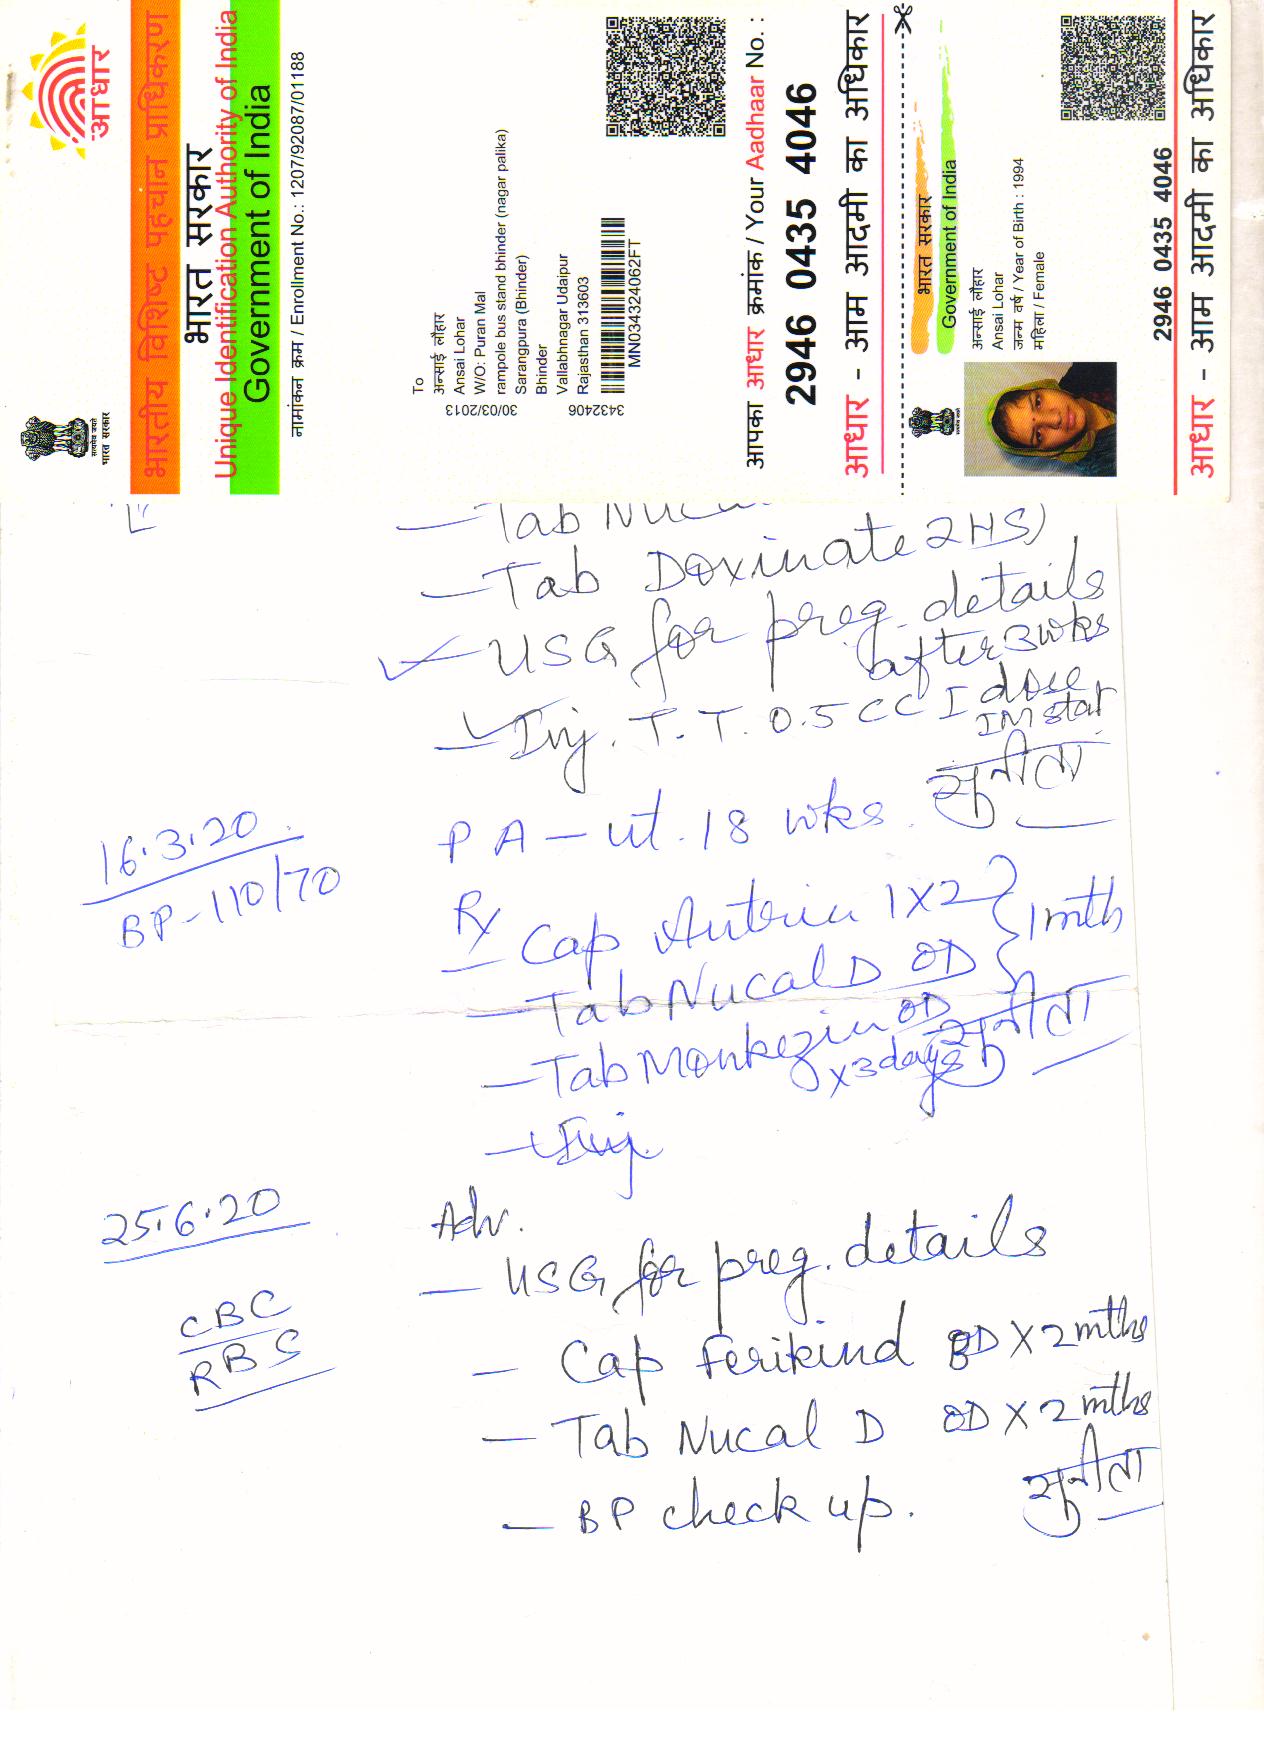 आधार
सत्यमेव जयते
भारत सरकार
भारतीय विशिष्ट पहचान प्राधिकरण
भारत सरकार
Unique Identification Authority of India
Government of India
नामांकन क्रम / Enrollment No.: 1207/92087/01188
To
अन्साई लौहार
Ansai Lohar
W/O: Puran Mal
rampole bus stand bhinder (nagar palika)
Sarangpura (Bhinder)
Bhinder
Vallabhnagar Udaipur
Rajasthan 313603
30/03/2013
3432406
MN034324062FT
आपका आधार क्रमांक / Your Aadhaar No. :
2946 0435 4046
आधार - आम आदमी का अधिकार
भारत सरकार
Government of India
अन्साई लौहार
Ansai Lohar
जन्म वर्ष / Year of Birth : 1994
महिला / Female
2946 0435 4046
आधार - आम आदमी का अधिकार
- Tab
- Tab Doxinate 2 HS)
- USG for preg. details
after 3 wks
- Inj. T. T. 0.5 CC I dose
IM stat
सुनीता
16.3.20
BP-110/70
PA - ut. 18 wks.
Rx
- Cap 1X2 } 1 mth
- Tab Nucal D OD
- Tab OD
x 3 days
सुनीता
- Inj.
25.6.20
CBC
RBS
Adv.
- USG for preg. details
- Cap Ferikind BD X 2 mths
- Tab Nucal D OD X 2 mths
- BP check up.
सुनीता